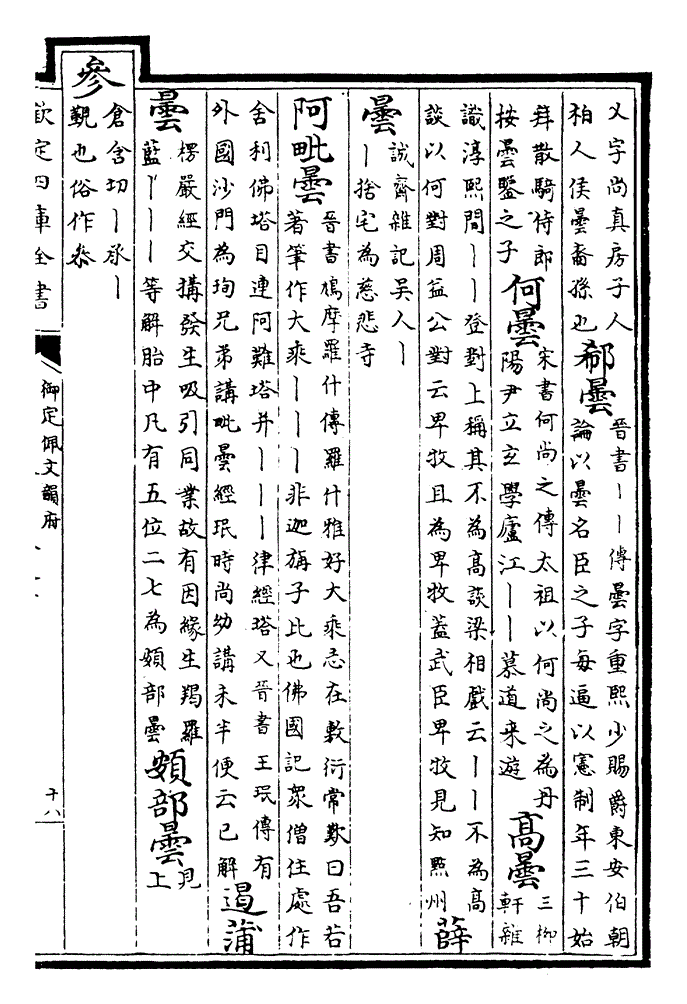 乂字尚真房子人
柏人侯曇裔孫也
郗曇
晉書丨丨傳曇字重熙少賜爵東安伯朝
論以曇名臣之子每逼以憲制年三十始
拜散騎侍郎
按曇鑒之子
何曇
宋書何尚之傳太祖以何尚之為丹
陽尹立玄學廬江丨丨慕道来遊
高曇
三柳
軒雜
識淳熙間丨丨登對上稱其不為高談梁相戲云丨丨不為高
談以何對周益公對云卑牧且為卑牧蓋武臣卑牧見知㸃州
薛
曇
誠齋雜記吳人丨
丨捨宅為慈悲寺
阿毗曇
晉書鳩摩羅什傳羅什雅好大乘志在敷衍常歎曰吾若
著筆作大乘丨丨丨非迦旃子比也佛國記衆僧住處作
舍利佛塔目連阿難塔并丨丨丨律經塔又晉書王珉傳有
外國沙門為珣兄弟講毗曇經珉時尚幼講未半便云已解
遏蒲
曇
楞嚴經交搆發生吸引同業故有因緣生羯羅
藍丨丨丨等解胎中凡有五位二七為頞部曇
頞部曇
見
上
參
倉含切丨承丨
覲也俗作叅
欽定四庫全書
御定佩文韻府
十八